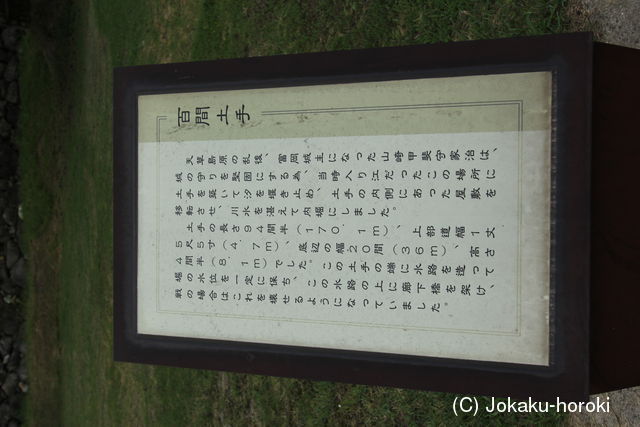 百間土手
天草島原の乱後、富岡城主になった山崎甲斐守家治は、
城の守りを堅固にする為、当時入り江だったこの場所に
土手を築いて汐を堰き止め、土手の内側にあった屋敷を
移転させ、川水を湛えて内堀にしました。
土手の長さ94間半（170.1m）、上部道幅1丈
5尺5寸（4.7m）、底辺の幅20間（36m）、高さ
4間半（8.1m）でした。この土手の端に水路を造って
堀の水位を一定に保ち、この水路の上に廊下橋を架け、
戦の場合はこれを壊せるようになっていました。
(C) Jokaku-horoki